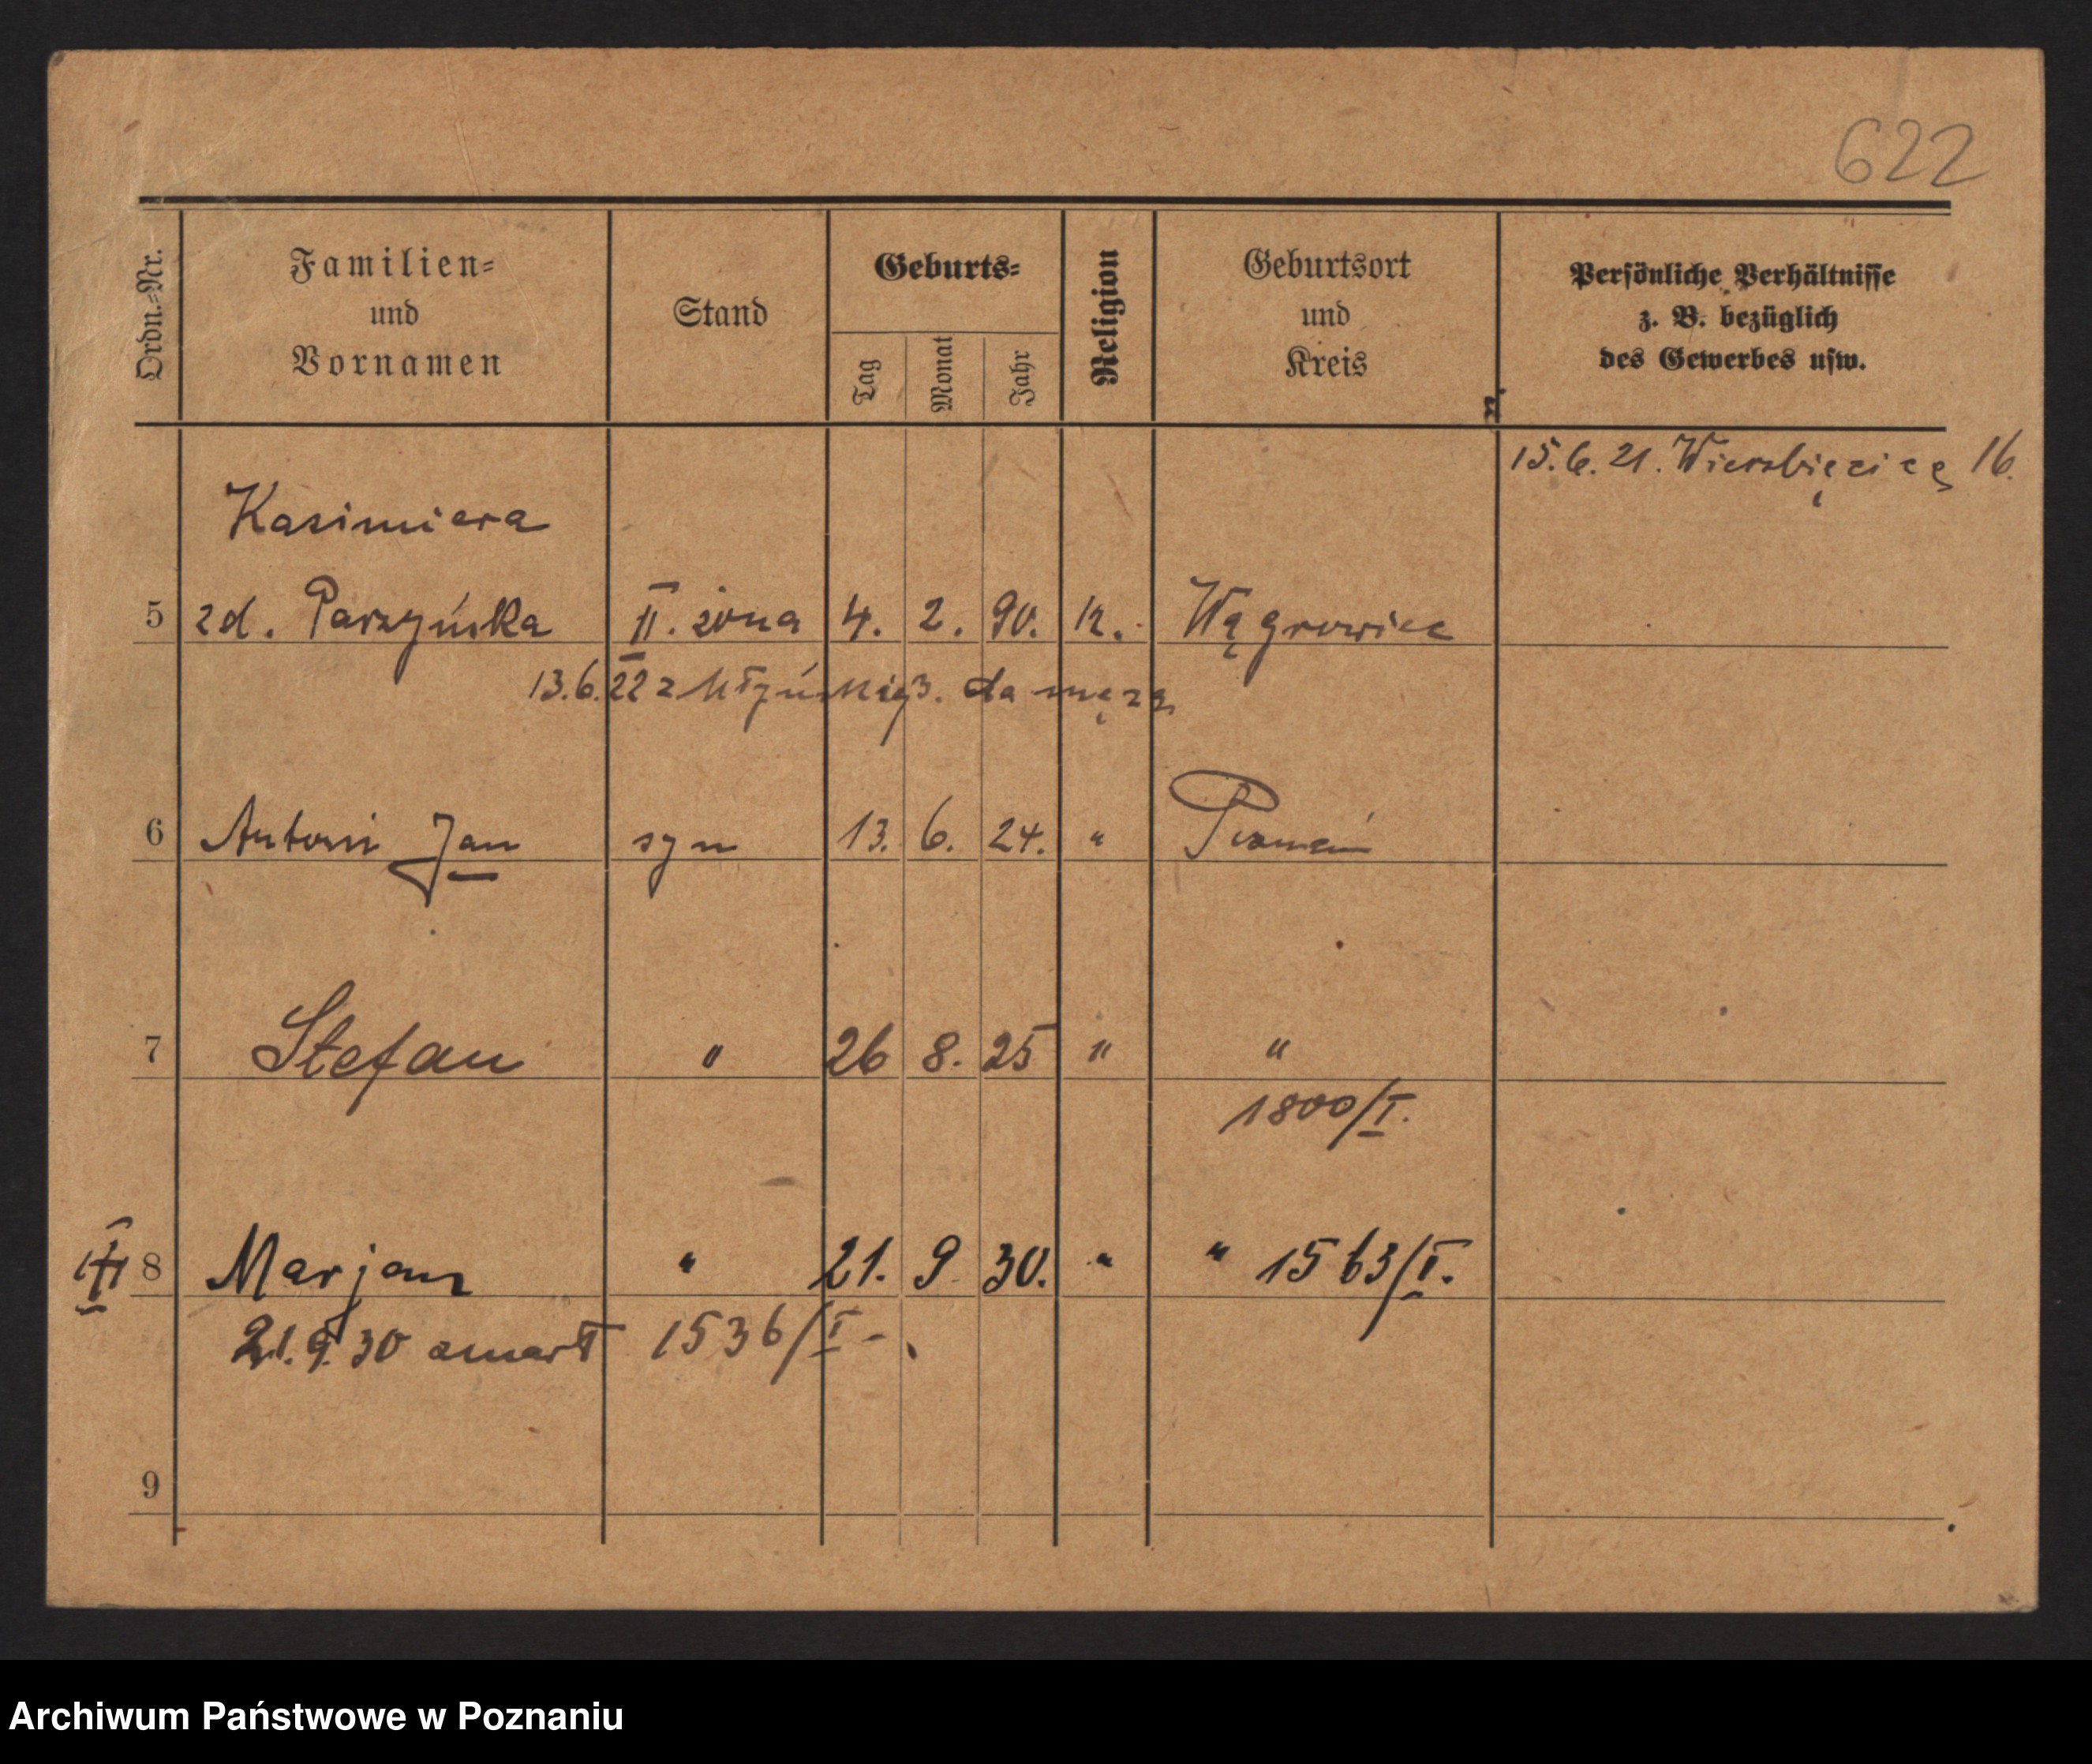 622
Ordn.-Nr.
Familien-
und
Vornamen
Stand
Geburts-
Tag
Monat
Jahr
Religion
Geburtsort
und
Kreis
Persönliche Verhältnisse
z. B. bezüglich
des Gewerbes usw.
15.6.21. Wierzbięcice 16.
Kazimiera
5 zd. Parzyńska II. żona 4. 2. 90. k. Wągrowiec
13.6.22 z do męża
6 Antoni Jan syn 13. 6. 24. " Poznań
7 Stefan " 26 8. 25 " "
1800/I.
8 Marjan " 21. 9 30. " " 1563/I.
21.9.30 zmarł 1536/I-
9
Archiwum Państwowe w Poznaniu